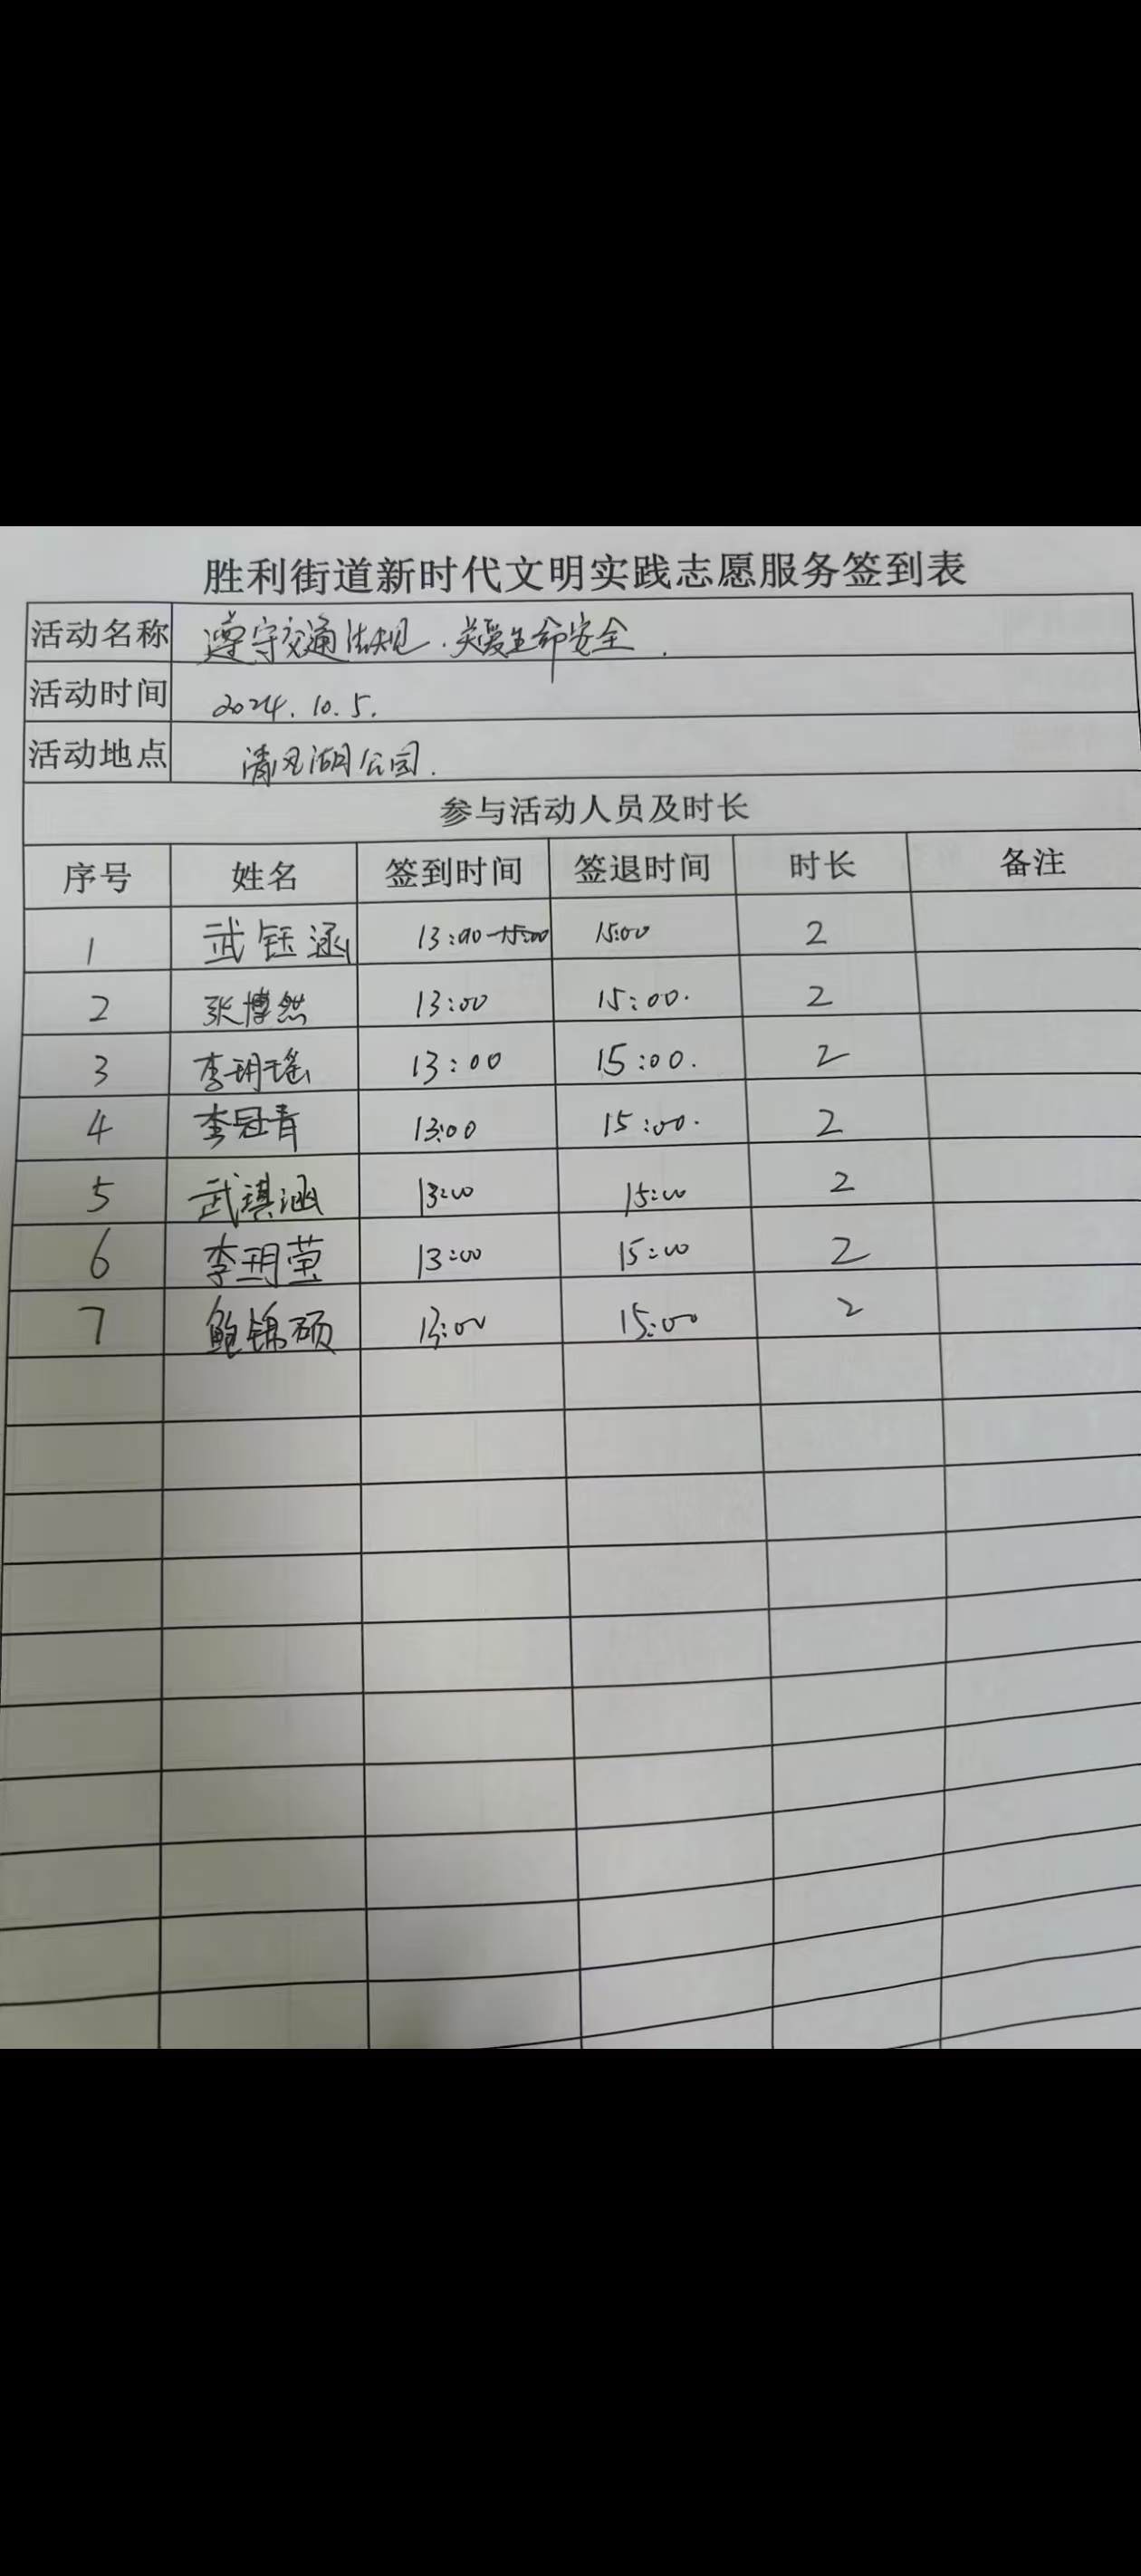 胜利街道新时代文明实践志愿服务签到表
活动名称 遵守交通法规.关爱生命安全.
活动时间 2024.10.5.
活动地点 清风湖公园.
参与活动人员及时长
序号 姓名 签到时间 签退时间 时长 备注
1 武钰涵 13:00-15:00 15:00 2
2 张博然 13:00 15:00. 2
3 李玥瑶 13:00 15:00. 2
4 李冠青 13:00 15:00. 2
5 武琪涵 13:00 15:00 2
6 李玥莹 13:00 15:00 2
7 鲍锦硕 13:00 15:00 2